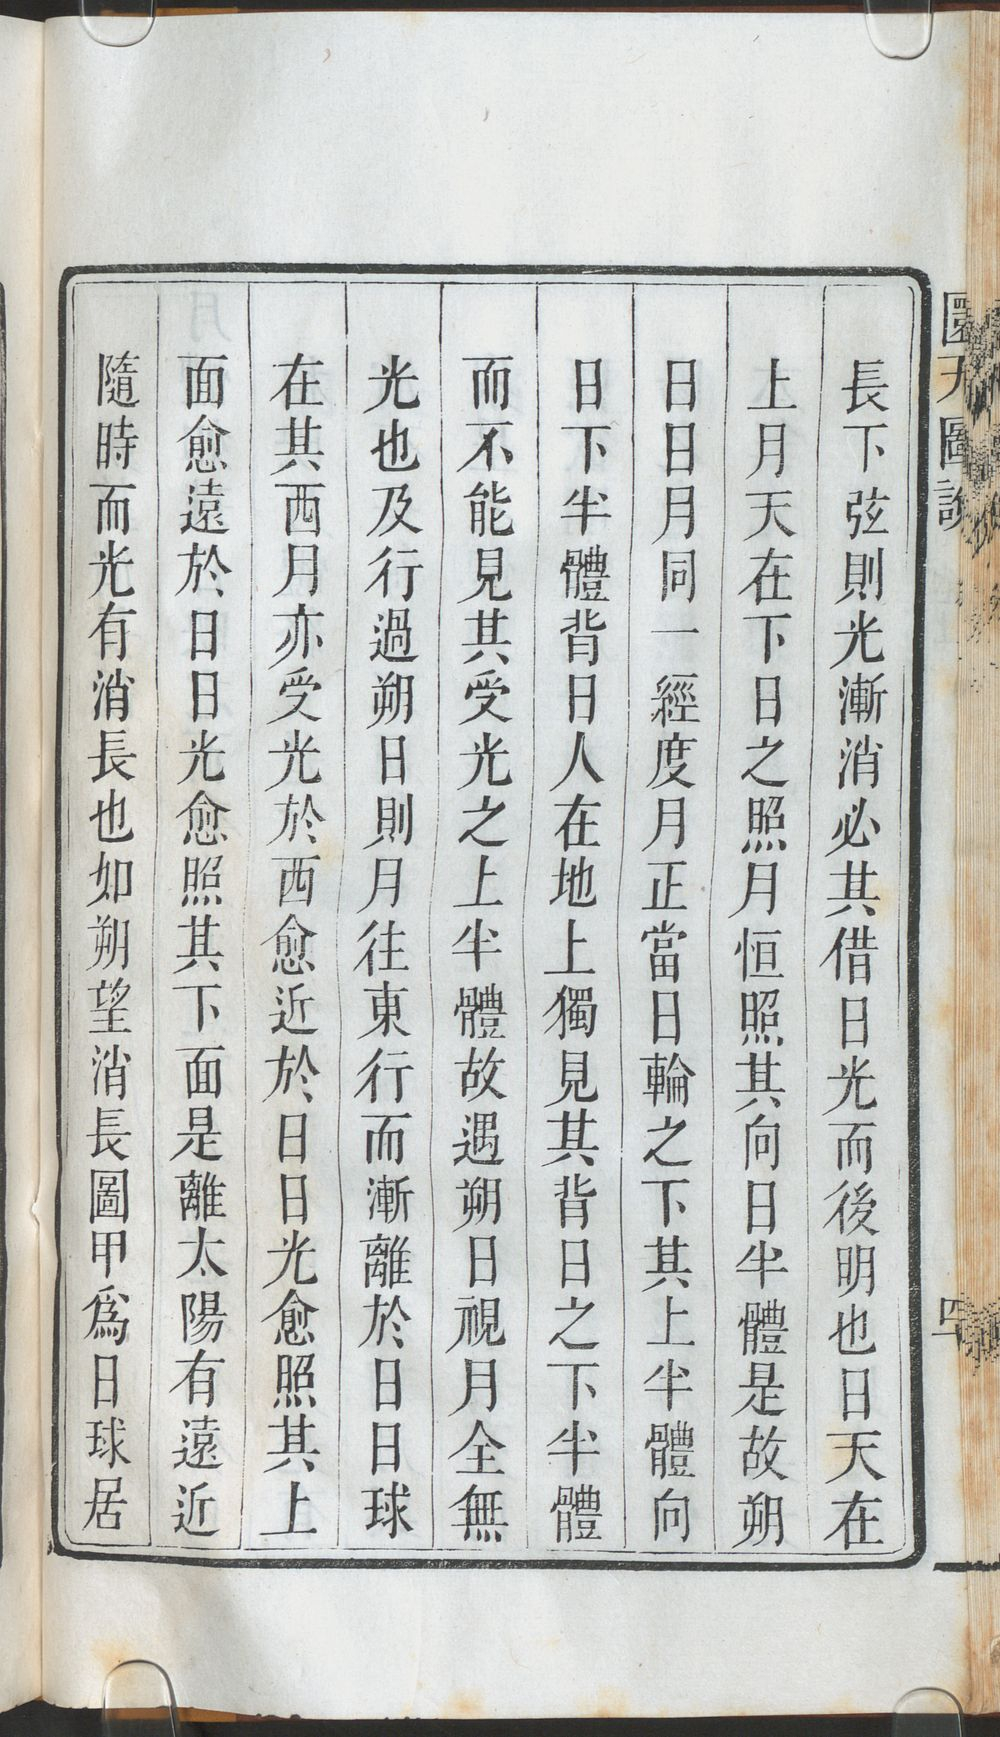 長下弦則光漸消必其借日光而後明也日天在
上月天在下日之照月恒照其向日半體是故朔
日日月同一經度月正當日輪之下其上半體向
日下半體背日人在地上獨見其背日之下半體
而不能見其受光之上半體故遇朔日視月全無
光也及行過朔日則月往東行而漸離於日日球
在其西月亦受光於西愈近於日日光愈照其上
面愈遠於日日光愈照其下面是離太陽有遠近
隨時而光有消長也如朔望消長圖甲爲日球居